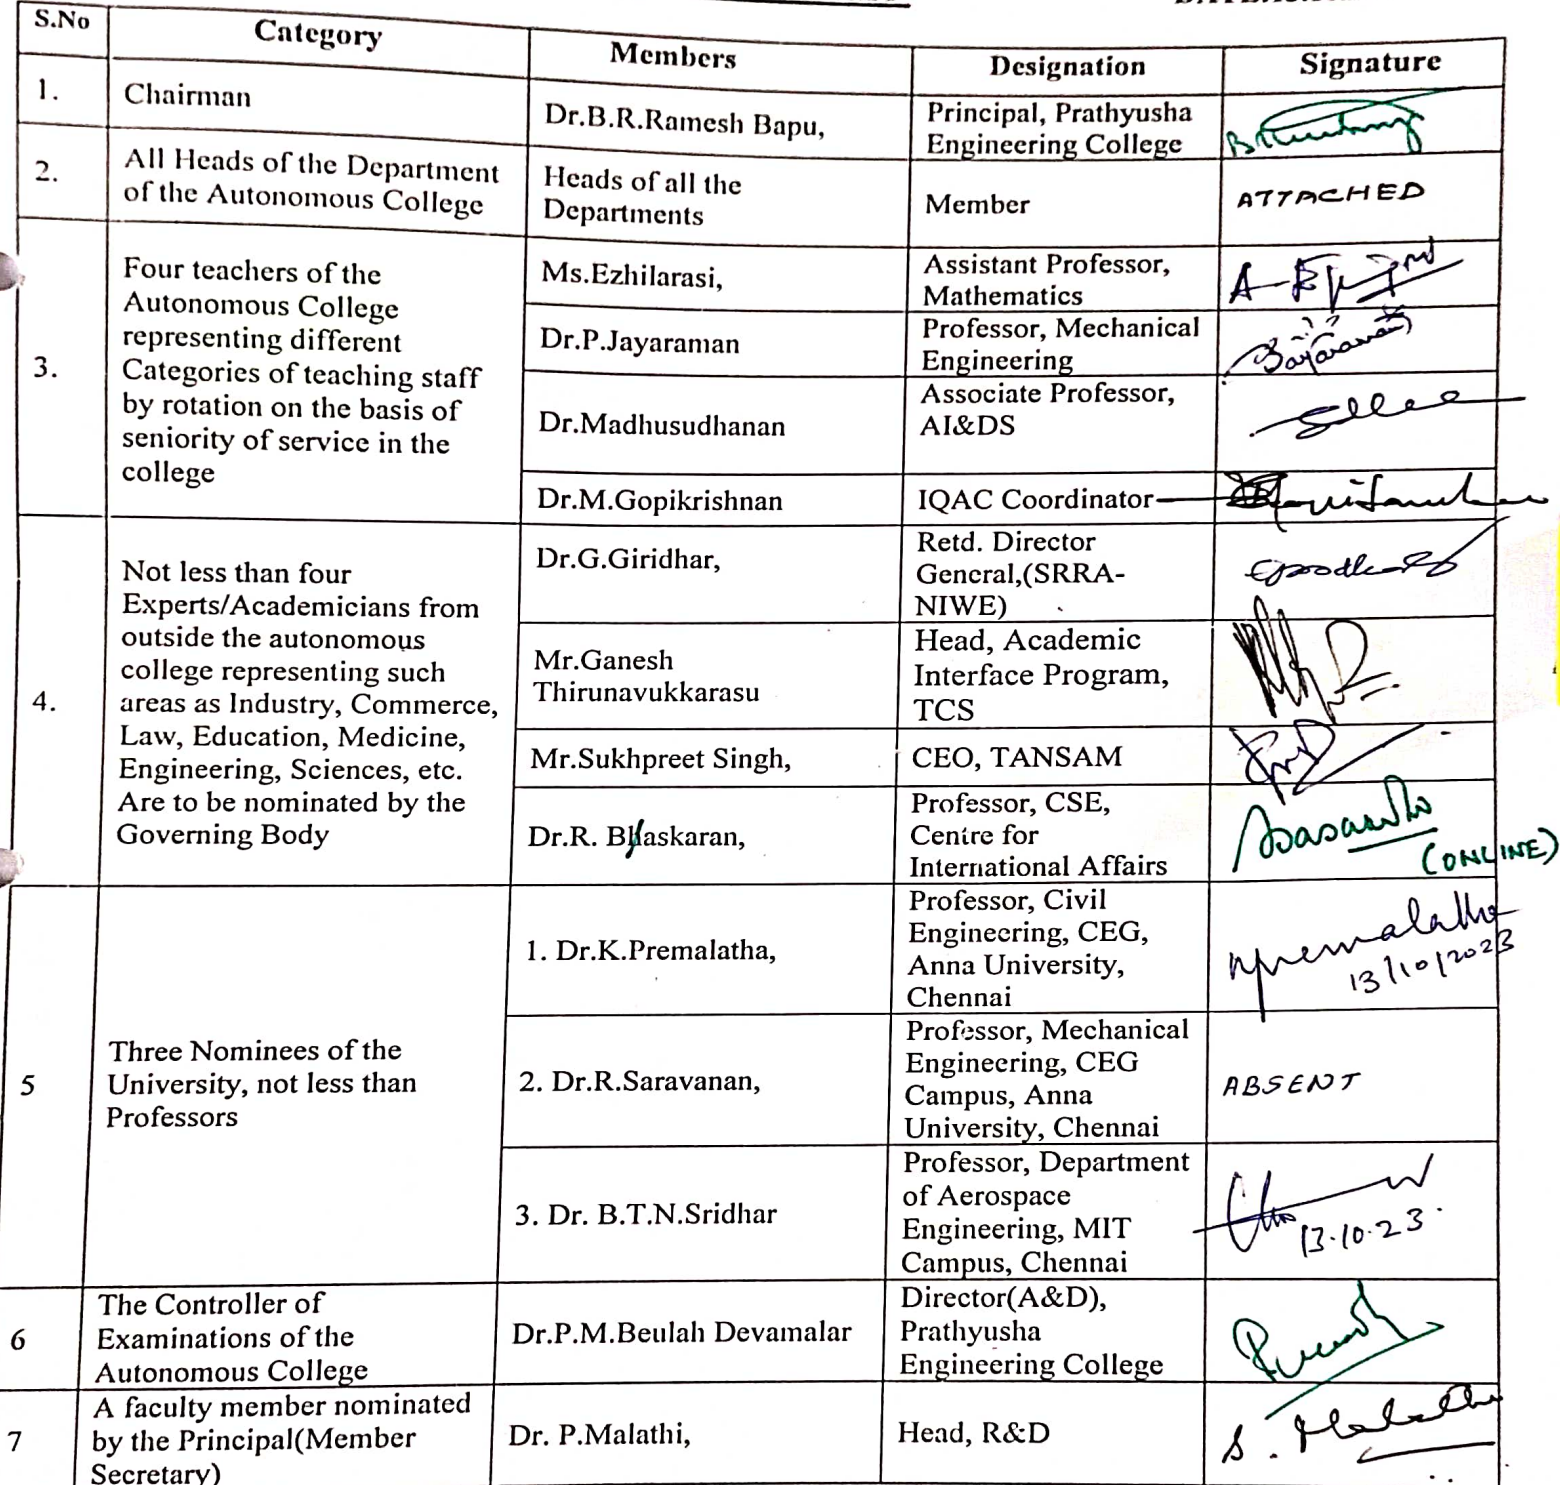 S.No Category Members Designation Signature
1. Chairman Dr.B.R.Ramesh Bapu, Principal, Prathyusha
Engineering College
2. All Heads of the Department
of the Autonomous College
Heads of all the
Departments
Member ATTACHED
3. Four teachers of the
Autonomous College
representing different
Categories of teaching staff
by rotation on the basis of
seniority of service in the
college
Ms.Ezhilarasi, Assistant Professor,
Mathematics
Dr.P.Jayaraman Professor, Mechanical
Engineering
Jayaraman
Dr.Madhusudhanan Associate Professor,
AI&DS
Dr.M.Gopikrishnan IQAC Coordinator
4. Not less than four
Experts/Academicians from
outside the autonomous
college representing such
areas as Industry, Commerce,
Law, Education, Medicine,
Engineering, Sciences, etc.
Are to be nominated by the
Governing Body
Dr.G.Giridhar, Retd. Director
General,(SRRA-
NIWE)
Mr.Ganesh
Thirunavukkarasu
Head, Academic
Interface Program,
TCS
Mr.Sukhpreet Singh, CEO, TANSAM
Dr.R. Bhaskaran, Professor, CSE,
Centre for
International Affairs
(ONLINE)
5 Three Nominees of the
University, not less than
Professors
1. Dr.K.Premalatha, Professor, Civil
Engineering, CEG,
Anna University,
Chennai
Premalatha
13/10/2023
2. Dr.R.Saravanan, Professor, Mechanical
Engineering, CEG
Campus, Anna
University, Chennai
ABSENT
3. Dr. B.T.N.Sridhar Professor, Department
of Aerospace
Engineering, MIT
Campus, Chennai
13.10.23.
6 The Controller of
Examinations of the
Autonomous College
Dr.P.M.Beulah Devamalar Director(A&D),
Prathyusha
Engineering College
7 A faculty member nominated
by the Principal(Member
Secretary)
Dr. P.Malathi, Head, R&D
S. Malathi